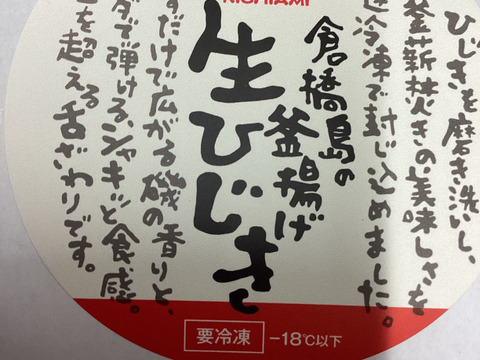 ひじきを磨き洗いし、
釜薪焚きの美味しさを
速冷凍で封じ込めました。
倉橋島の
釜揚げ
生ひじき
すだけで広がる磯の香りと、
ダで弾ける、シャキッと食感。
を超える舌ざわりです。
要冷凍 -18℃以下